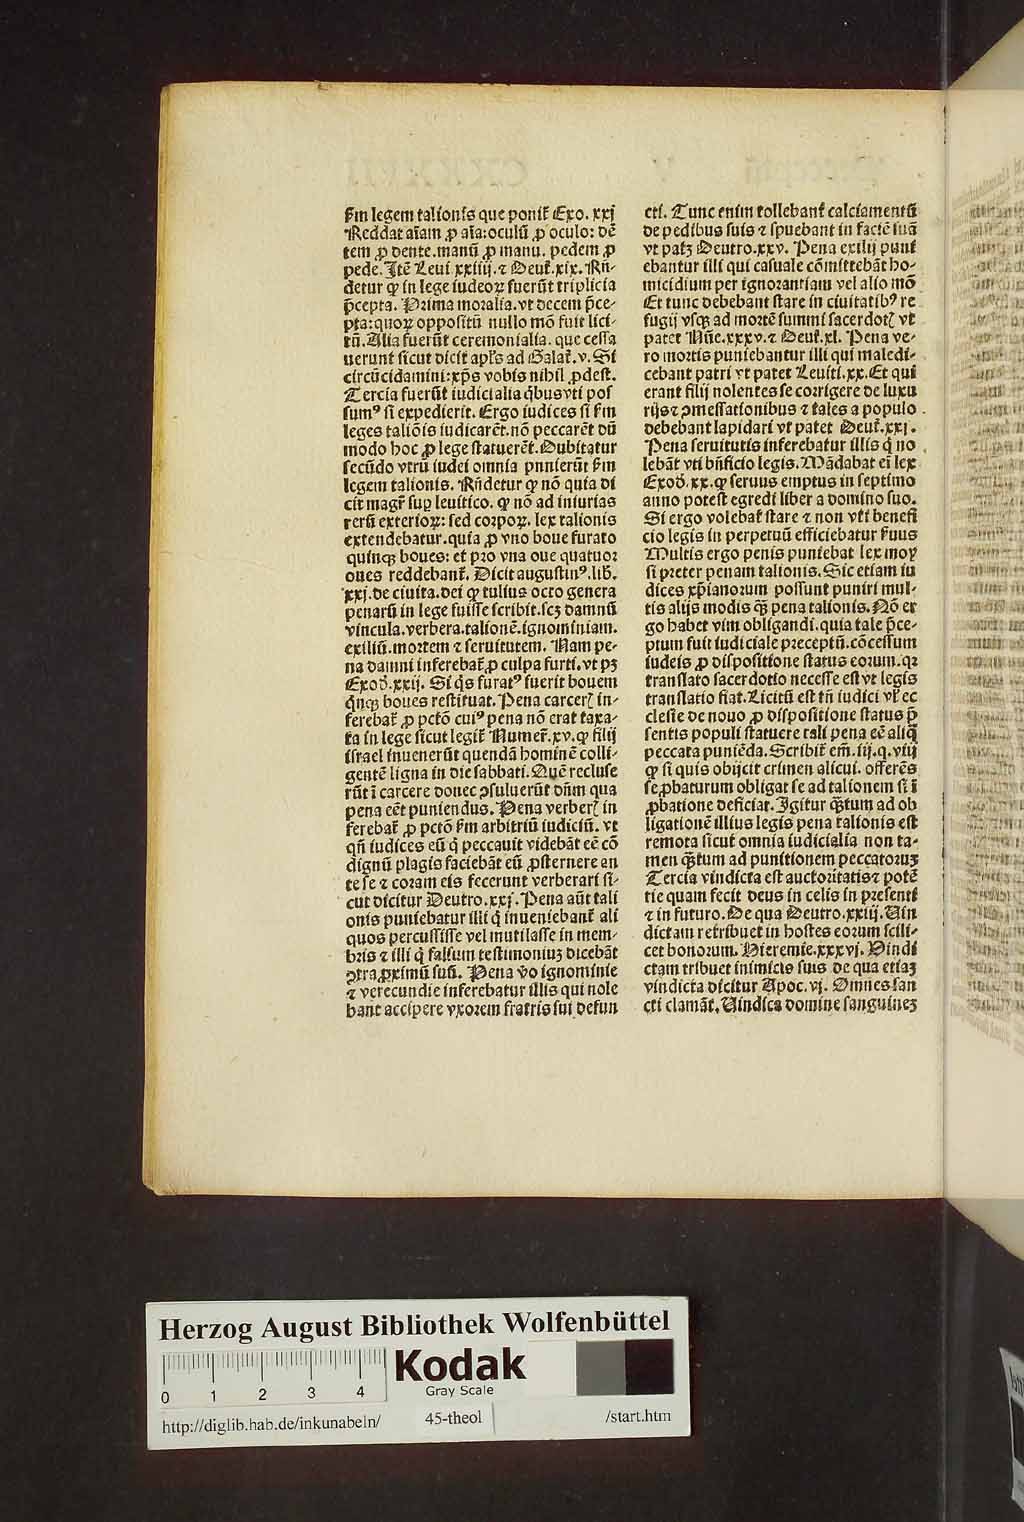 ẜm legem talionis que ponit᷑ Exo. xxj
Reddat aīam ꝓ aīa: oculū ꝓ oculo: dē
tem ꝓ dente. manū ꝓ manu. pedem ꝓ
pede. Itē Leui xxiiij. ⁊ Deut᷑. xix. Rñ-
detur ꝙ in lege iudeoꝝ fuerūt triplicia
p̄cepta. Prima moralia. vt decem p̄ce-
pta: quoꝝ oppositū nullo mō fuit lici-
tū. Alia fuerūt ceremonialia. que cessa
uerunt sicut dicit apl̄s ad Galat᷑. v. Si
circūcidamini: xp̄s vobis nihil ꝓdest.
Tercia fuerūt iudicialia q̇bus vti pos
sumꝰ si expedierit. Ergo iudices si ẜm
leges taliōis iudicarēt. nō peccarēt dū
modo hoc ꝓ lege statuerēt. Dubitatur
secūdo vtrū iudei omnia pnnierūt ẜm
legem talionis. Rñdetur ꝙ nō quia di
cit magr̄ suꝑ leuitico. ꝙ nō ad iniurias
rerū exterioꝝ: sed corpoꝝ. lex talionis
extendebatur. quia ꝓ vno boue furato
quinqꝫ boues: et pro vna oue quatuor
oues reddebant᷑. Dicit augustinꝰ. lib̄.
xxj. de ciuita. dei ꝙ tulius octo genera
penarū in lege fuisse scribit. scꝫ damnū
vincula. verbera. talionē. ignominiam.
exiliū. mortem ⁊ seruitutem. Nam pe-
na damni inferebat᷑ ꝓ culpa furti. vt pꝫ
Exod̄. xxij. Si q̇s furatꝰ fuerit bouem
q̇nqꝫ boues restituat. Pena carceꝝ in-
ferebat᷑ ꝓ pctō cuiꝰ pena nō erat taxa-
ta in lege sicut legit᷑ Numer᷑. xv. ꝙ filij
israel inuenerūt quendā hominē colli-
gentē ligna in die sabbati. Quē recluse
rūt ī carcere donec ꝯsuluerūt dn̄m qua
pena eēt puniendus. Pena verbeꝝ in
ferebat᷑ ꝓ pctō ẜm arbitriū iudiciū. vt
qn̄ iudices eū q̇ peccauit videbāt eē cō
dignū plagis faciebāt eū ꝓsternere an
te se ⁊ coram eis fecerunt verberari si-
cut dicitur Deutro. xxj. Pena aūt tali
onis puniebatur illi q̇ inueniebant᷑ ali
quos percussisse vel mutilasse in mem-
bris ⁊ illi q̇ falsum testimoniuꝫ dicebāt
ꝯtra ꝓximū suū. Pena v̄o ignominie
⁊ verecundie inferebatur illis qui nole
bant accipere vxorem fratris sui defun
cti. Tunc enim tollebant᷑ calciamentū
de pedibus suis ⁊ spuebant in faciē suā
vt patꝫ Deutro. xxv. Pena exilij puni
ebantur illi qui casuale cōmittebāt ho-
micidium per ignorantiam vel alio mō
Et tunc debebant stare in ciuitatibꝰ re
fugij vsqꝫ ad mortē summi sacerdotꝭ vt
patet Nūe. xxxv. ⁊ Deut᷑. xl. Pena ve-
ro mortis puniebantur illi qui maledi-
cebant patri vt patet Leuiti. xx. Et qui
erant filij nolentes se corrigere de luxu
rijs ⁊ ꝯmessationibus ⁊ tales a populo
debebant lapidari vt patet Deut᷑. xxj.
Pena seruitutis inferebatur illis q̇ no
lebāt vti bn̄ficio legis. Mādabat ei lex
Exod̄. xx. ꝙ seruus emptus in septimo
anno potest egredi liber a domino suo.
Si ergo volebat᷑ stare ⁊ non vti benefi
cio legis in perpetuū efficiebatur ẜuus
Multis ergo penis puniebat lex moy
si preter penam talionis. Sic etiam iu
dices xp̄ianorum possunt puniri mul-
tis alijs modis qꝫ pena talionis. Nō er
go habet vim obligandi. quia tale p̄ce-
ptum fuit iudiciale preceptū. cōcessum
iudeis ꝓ dispositione status eorum. qꝛ
translato sacerdotio necesse est vt legis
translatio fiat. Licitū est tn̄ iudici vl̄ ec
clesie de nouo ꝓ dispositione status p̄
sentis populi statuere tali pena eē aliq̄
peccata puniēda. Scribit᷑ em̄. iij. q. viij
ꝙ si quis obijcit crimen alicui. offerēs
se ꝓbaturum obligat se ad talionem si ī
ꝓbatione deficiat. Igitur qꝫtum ad ob
ligationē illius legis pena talionis est
remota sicut omnia iudicialia non ta-
men qꝫtum ad punitionem peccatoruꝫ
Tercia vindicta est auctoritatis ⁊ potē
tie quam fecit deus in celis in presenti
⁊ in futuro. De qua Deutro. xxiij. Uin
dictam retribuet in hostes eorum scili-
cet bonorum. Hieremie. xxxvj. Vindi
ctam tribuet inimicis suis de qua etiaꝫ
vindicta dicitur Apoc. vj. Omnes san
cti clamāt. Uindica domine sanguineꝫ
Herzog August Bibliothek Wolfenbüttel
Kodak
Gray Scale
0 1 2 3 4
http://diglib.hab.de/inkunabeln/ 45-theol /start.htm